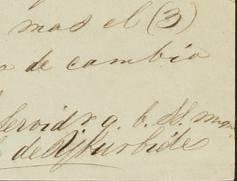 mas el (3)
de cambio
Servidr q. b. SS. m
de Yturbide